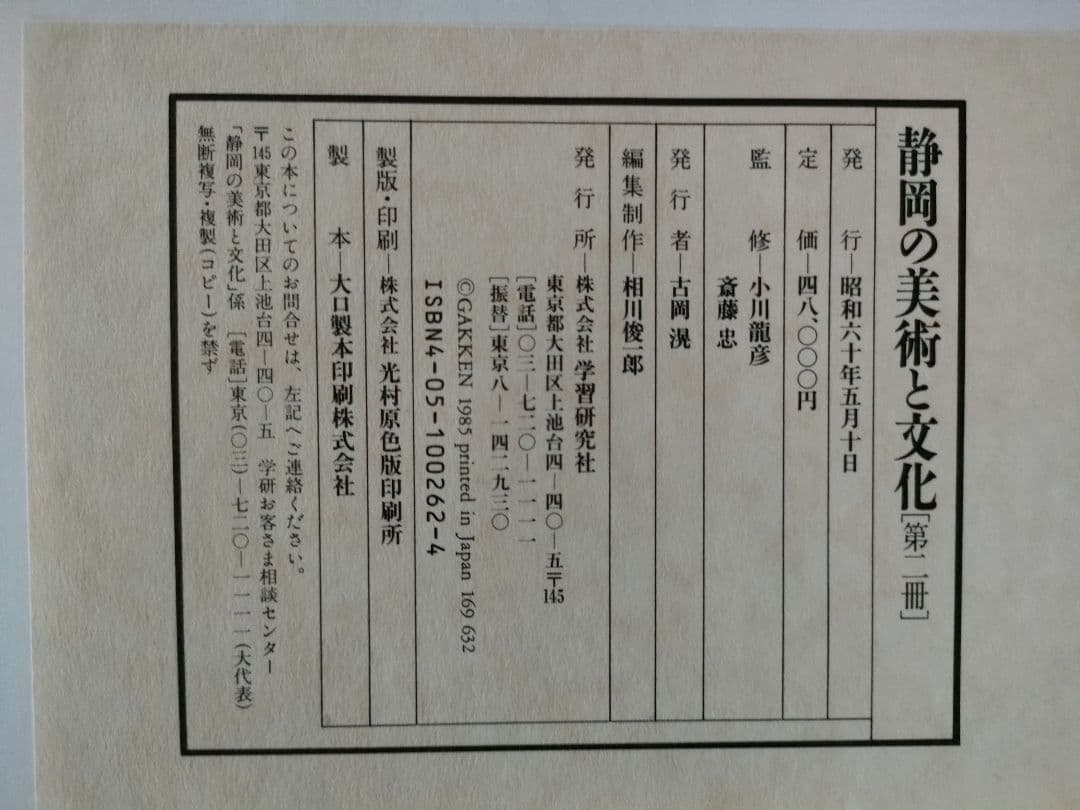 静岡の美術と文化[第二冊]
発行―昭和六十年五月十日
定価―四八、〇〇〇円
監修―小川龍彦
斎藤忠
発行者―古岡滉
編集制作―相川俊一郎
発行所―株式会社 学習研究社
東京都大田区上池台四―四〇―五〒145
[電話]〇三―七二〇―一一一一
[振替]東京八―一四二九三〇
©GAKKEN 1985 printed in Japan 169 632
ISBN4-05-100262-4
製版・印刷―株式会社 光村原色版印刷所
製本―大口製本印刷株式会社
この本についてのお問合せは、左記へご連絡ください。
〒145東京都大田区上池台四―四〇―五 学研お客さま相談センター
「静岡の美術と文化」係 [電話]東京(〇三)―七二〇―一一一一(大代表)
無断複写・複製(コピー)を禁ず